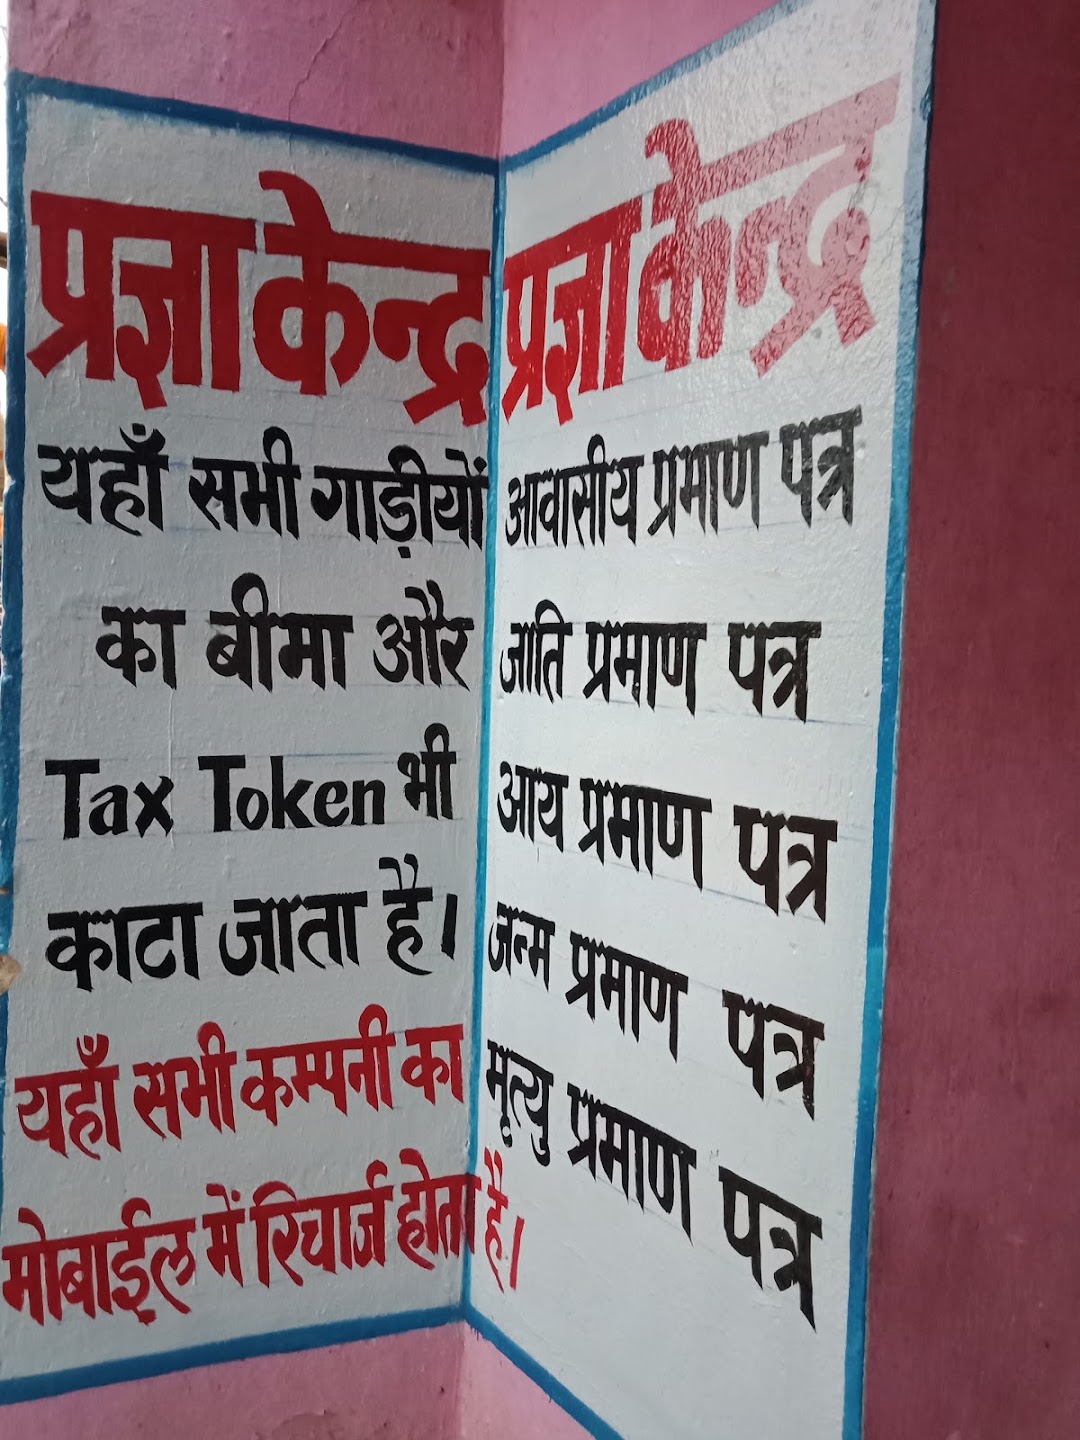 प्रज्ञा केन्द्र
यहाँ सभी गाड़ीयों
का बीमा और
Tax Token भी
काटा जाता है।
यहाँ सभी कम्पनी का
मोबाईल में रिचार्ज होता है।
प्रज्ञा केन्द्र
आवासीय प्रमाण पत्र
जाति प्रमाण पत्र
आय प्रमाण पत्र
जन्म प्रमाण पत्र
मृत्यु प्रमाण पत्र